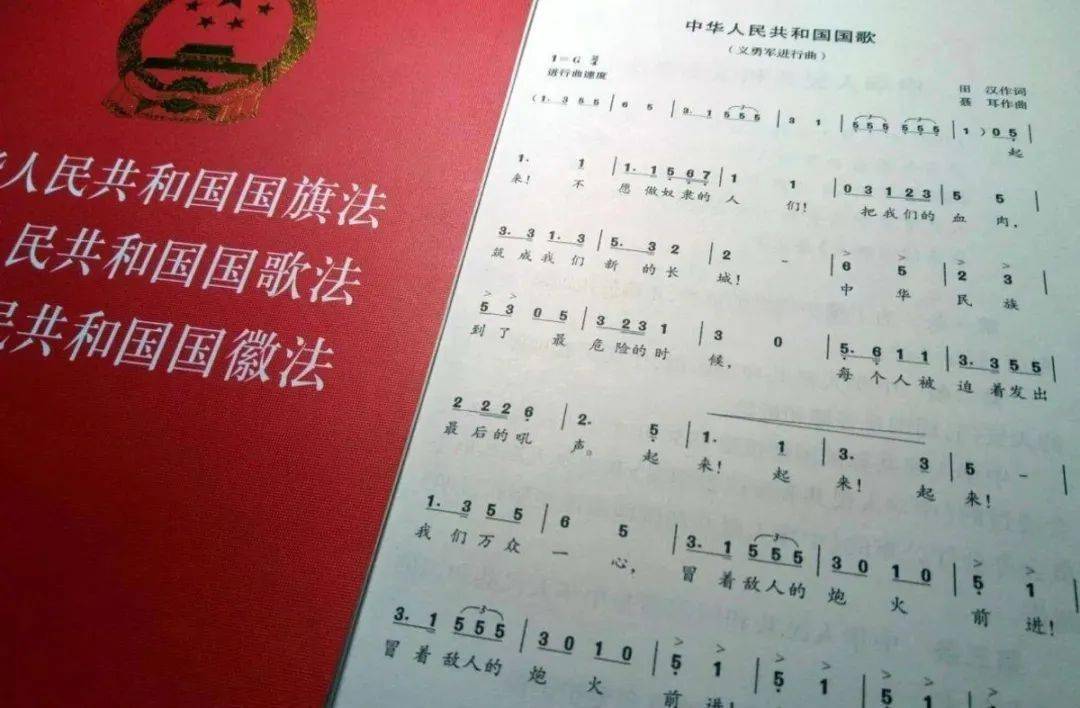 人民共和国国旗法
民共和国国歌法
民共和国国徽法
中华人民共和国国歌
(义勇军进行曲)
1=G 2/4
进行曲速度
田 汉作词
聂 耳作曲
(1. 3 5 5 | 6 5 | 3. 1 5 5 5 | 3 1 | 5 5 5 5 5 5 | 1 ) 0 5 |
起
1. 1 | 1. 1 5 6 7 | 1 1 | 0 3 1 2 3 | 5 5 |
来! 不 愿做奴隶的 人 们! 把我们的 血 肉,
3. 3 1. 3 | 5. 3 2 | 2 - | 6 5 | 2 3 |
筑成我们 新的长 城! 中 华 民 族
5 3 0 5 | 3 2 3 1 | 3 0 | 5. 6 1 1 | 3. 3 5 5 |
到了 最 危险的时 候, 每个人被 迫着发出
2 2 2 2 6 | 2. 5 | 1. 1 | 3. 3 | 5 - |
最后的吼 声。 起 来! 起 来! 起 来!
1. 3 5 5 | 6 5 | 3. 1 5 5 5 | 3 0 1 0 | 5 1 |
我们万众 一 心, 冒着敌人的 炮 火 前 进!
3. 1 5 5 5 | 3 0 1 0 | 5 1 | 5 1 | 5 1 |
冒着敌人的 炮 火 前 进!